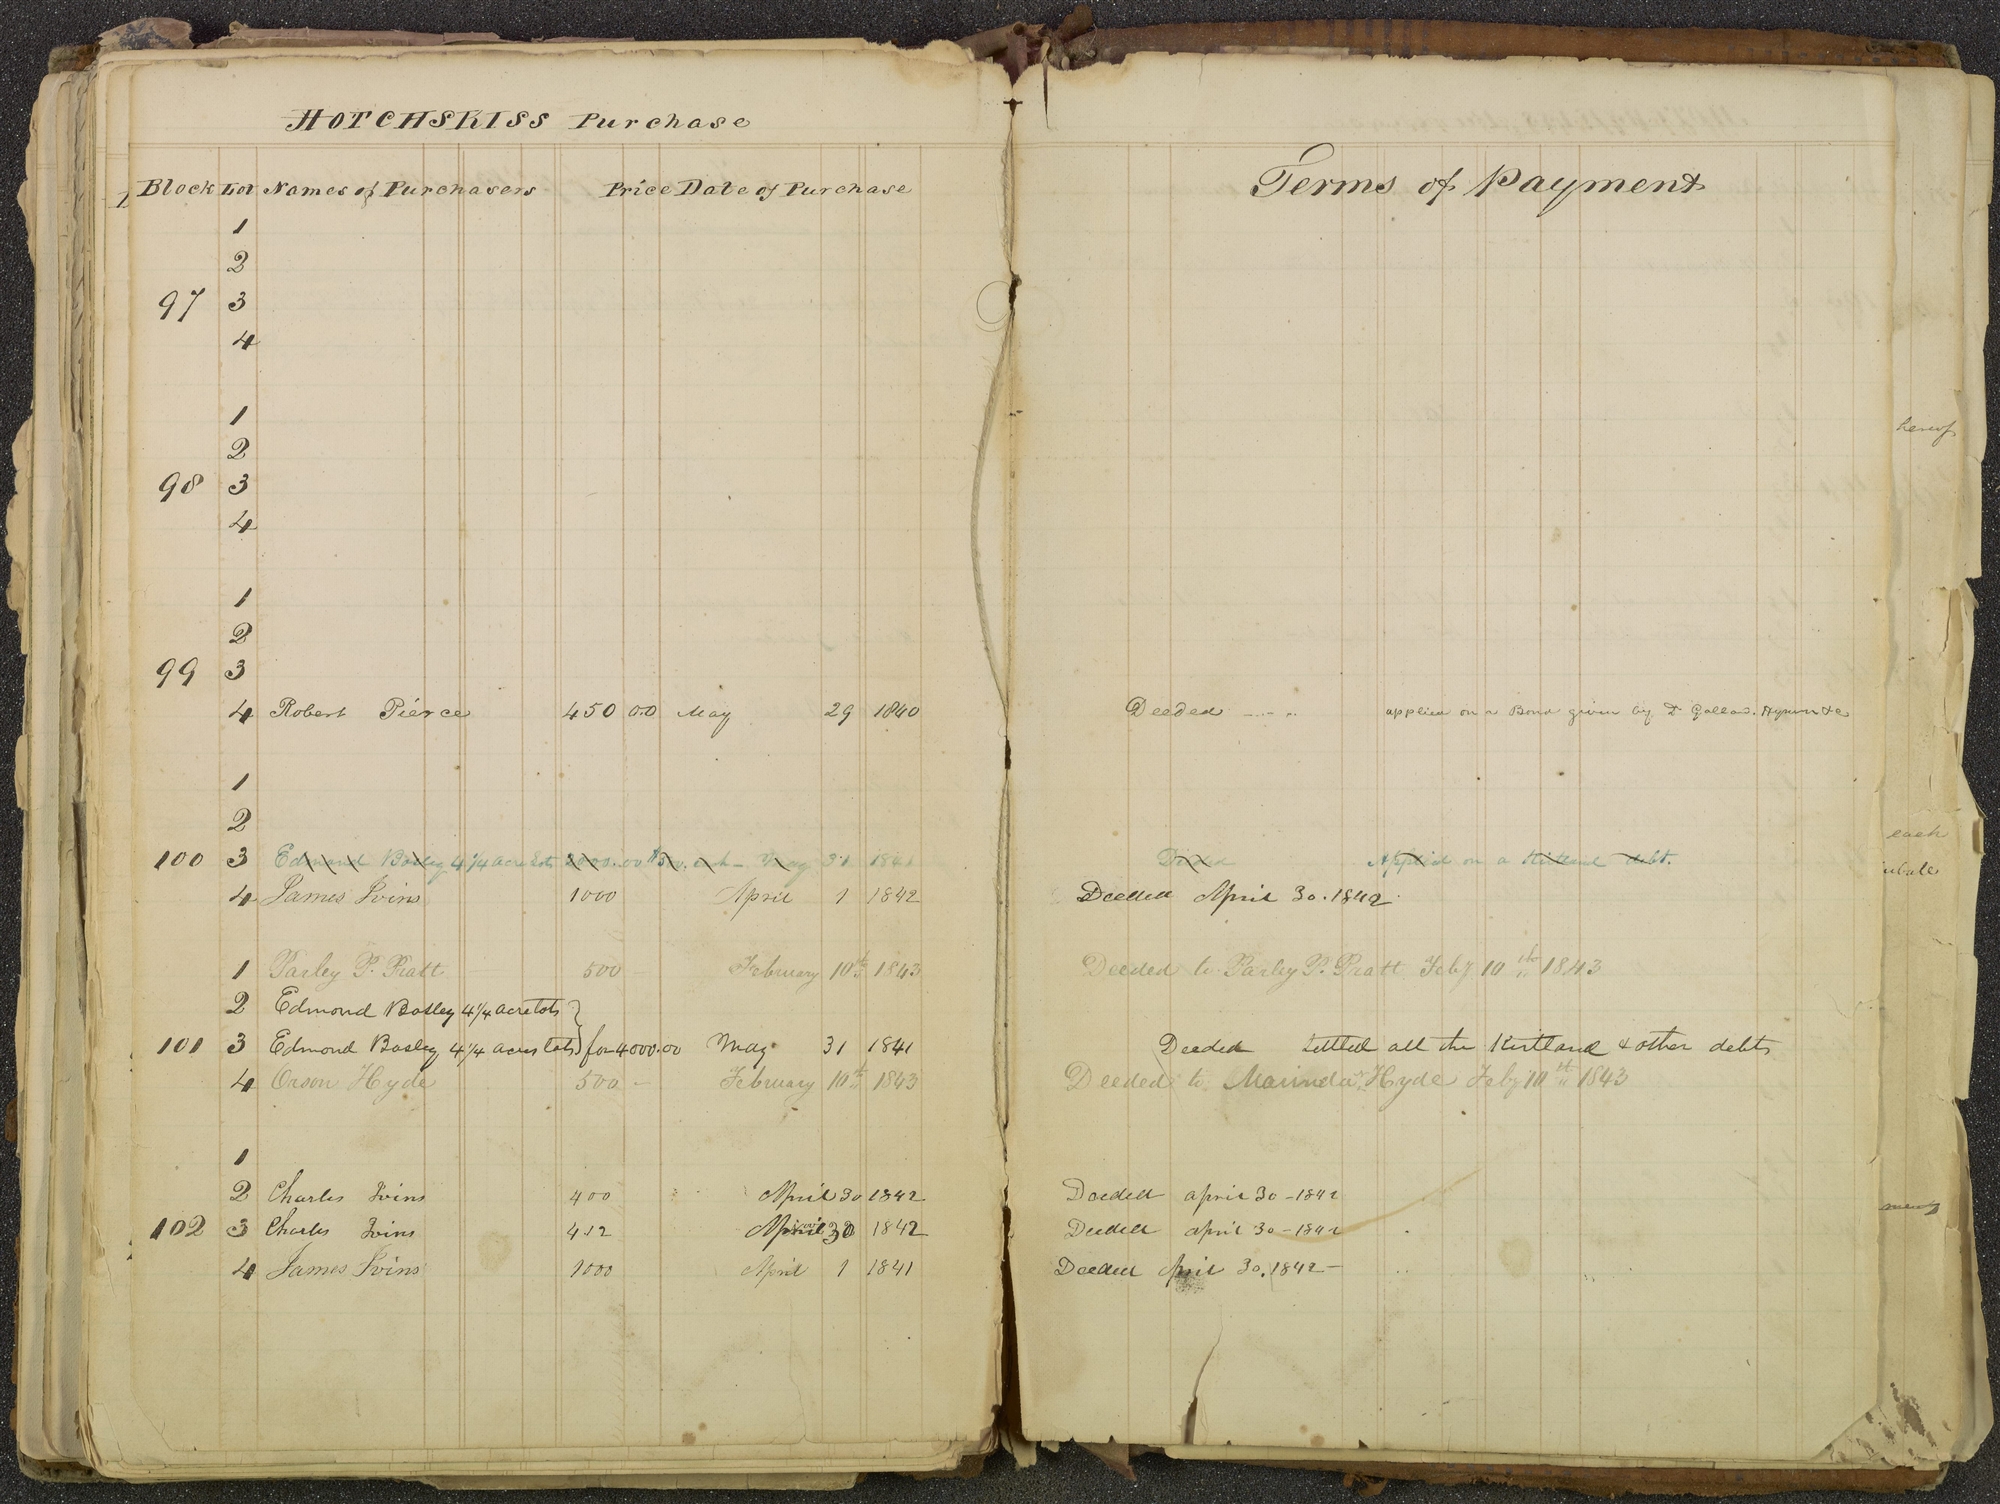 HOTCHSKISS Purchase
Block Lot Names of Purchasers Price Date of Purchase Terms of Payment
1
2
97 3
4
1
2
98 3
4
1
2
99 3
4 Robert Pierce 450 00 May 29 1840 Deeded applied on a Bond given by
1
2
100 3 Edmond Bosley 4 1/4 acre Lots 2000.00 May 31 1841 Deeded Applied on a Kirtland debt.
4 James Ivins 1000 April 1 1842 Deeded April 30. 1842
1 Parley P. Pratt 500 – February 10th 1843 Deeded to Parley P. Pratt Feby 10th 1843
2 Edmond Bosley 4 1/4 acre lots }
101 3 Edmond Bosley 4 1/4 acres lots } for 4000.00 May 31 1841 Deeded Settled all the Kirtland & other debts
4 Orson Hyde 500 – February 10th 1843 Deeded to Marinda Hyde Feby 10th 1843
1
2 Charles Ivins 400 April 30 1842 Deeded april 30 – 1842
102 3 Charles Ivins 412 April 30 1842 Deeded april 30 – 1842
4 James Ivins 1000 April 1 1841 Deeded April 30, 1842 –
hereof
each
ment